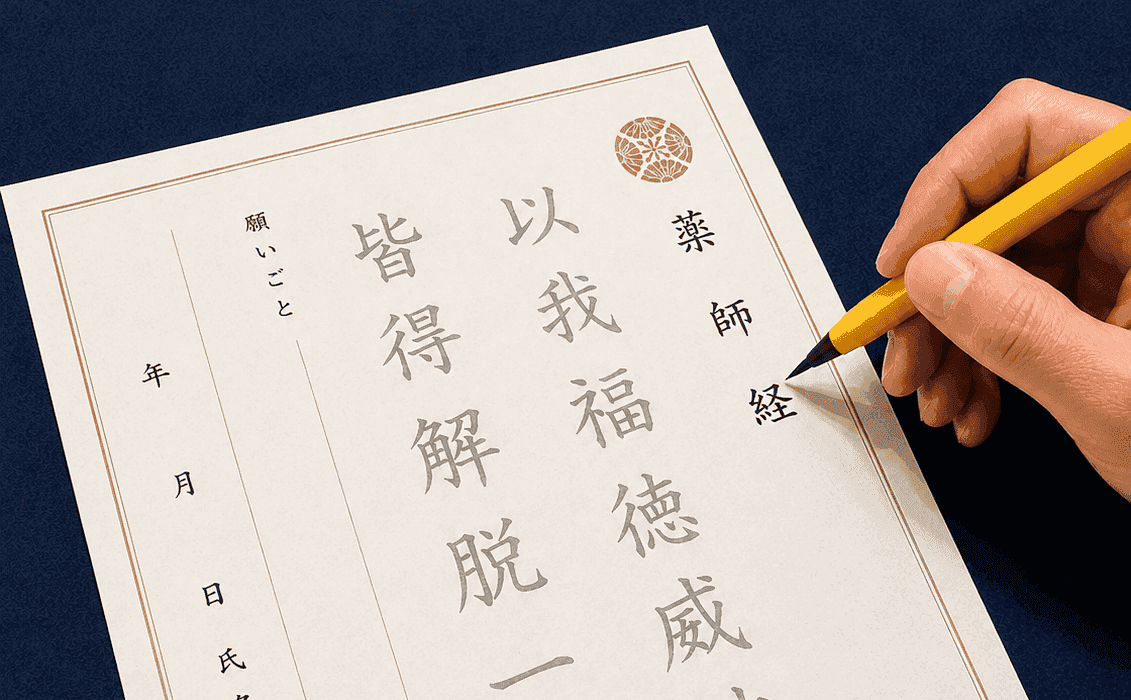 薬師経
以我福徳威
皆得解脱一
願いごと
年月日氏